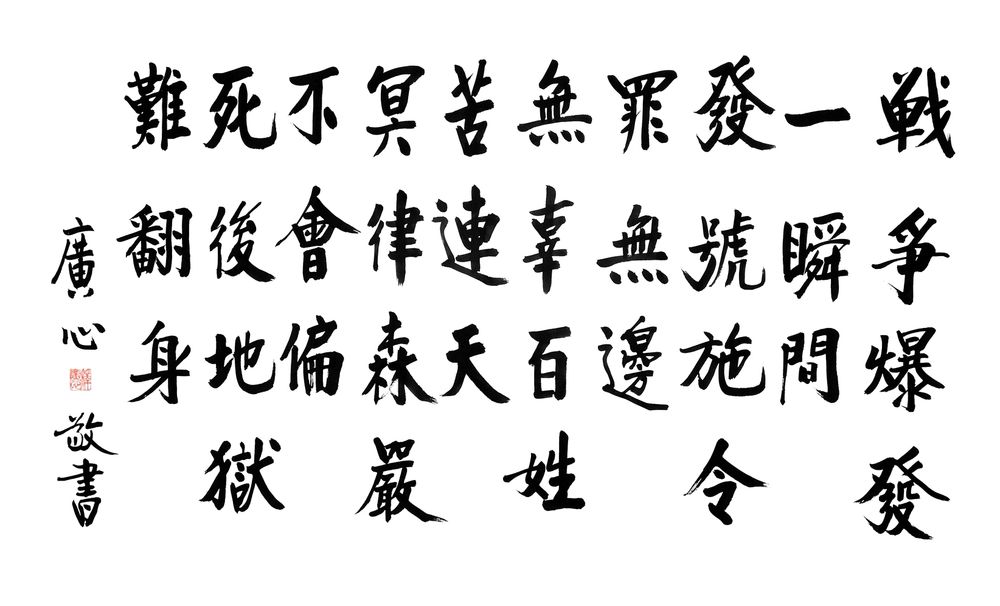 戰爭爆發
一瞬間
發號施令
罪無邊
無辜百姓
苦連天
冥律森嚴
不會偏
死後地獄
難翻身
廣心敬書